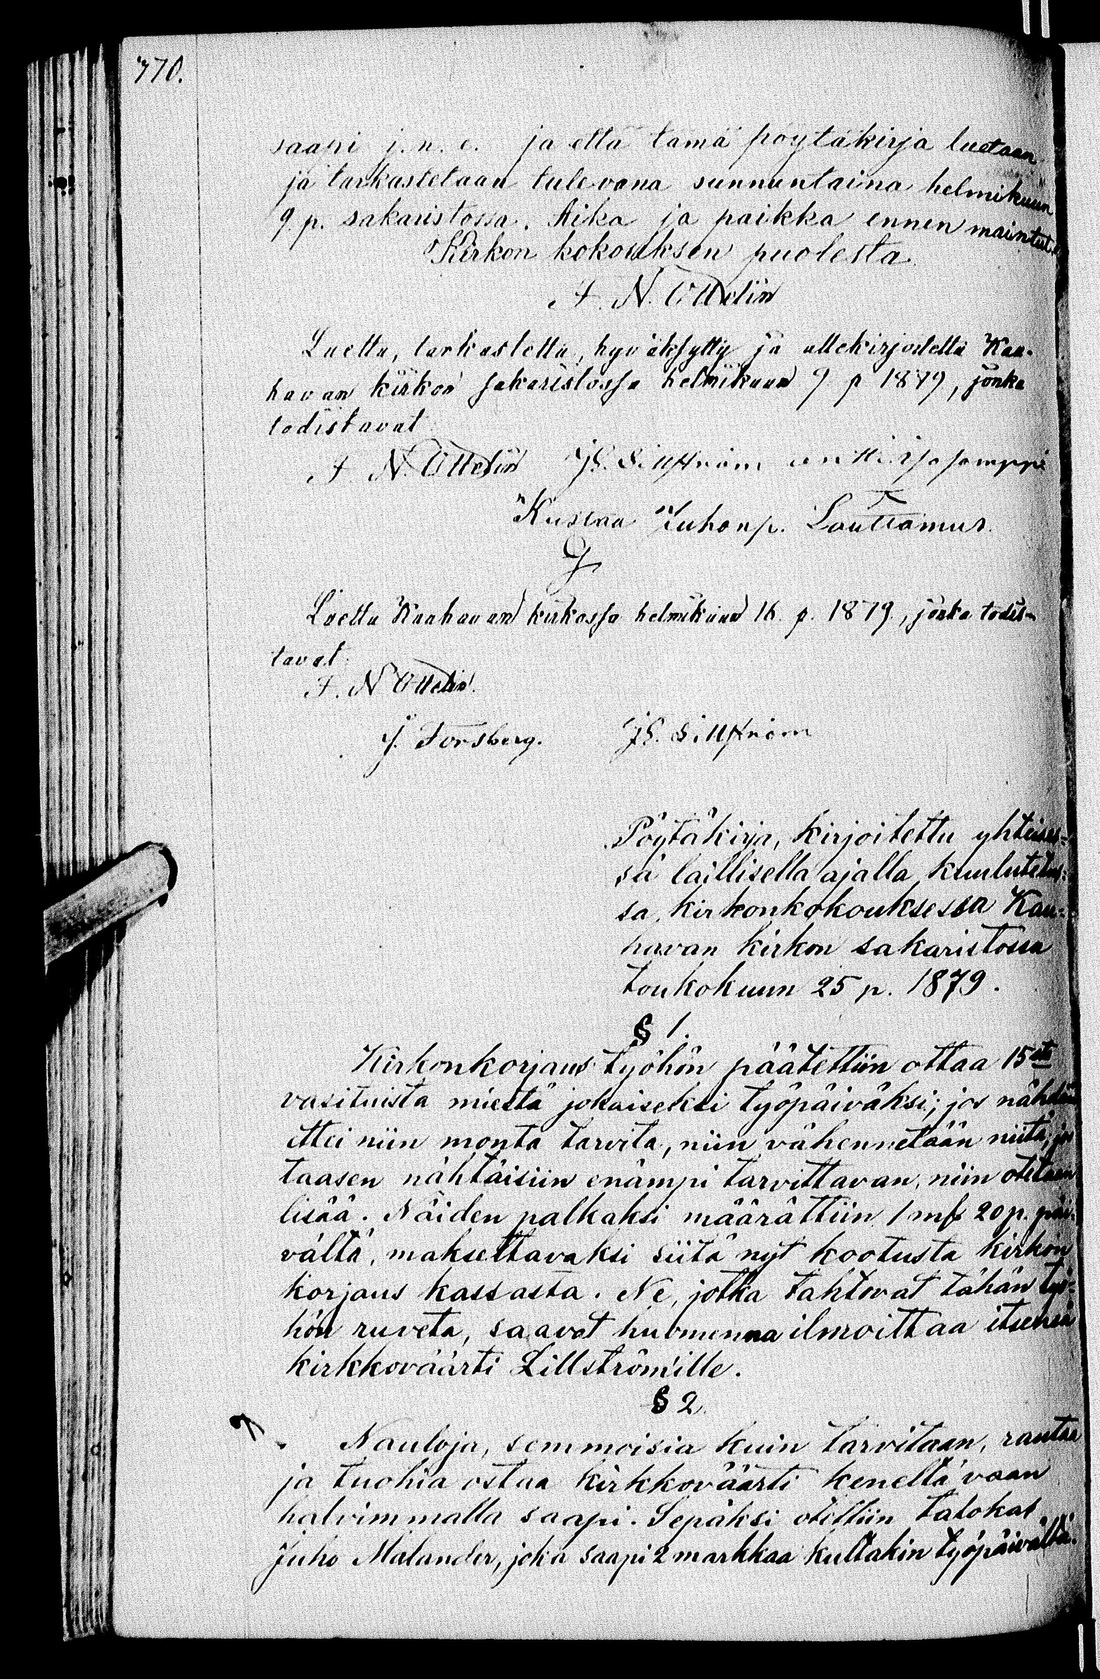 770.
saapi j. n. e. ja että tämä pöytäkirja luetaan
ja tarkastetaan tulevana sunnuntaina helmikuun
9. p. sakaristossa. Aika ja paikka ennen mainitut.
Kirkon kokouksen puolesta
F. N. Ottelin
Luettu, tarkastettu, hyväksytty ja allekirjoitettu Kau-
havan kirkon sakaristossa helmikuun 9 p 1879, jonka
todistavat:
F. N. Ottelin JE. Lillström Antti
Kustaa Juhonp. Louttamus.
Luettu Kauhavan kirkossa helmikuun 16 p. 1879, jonka todis-
tavat:
F. N Ottelin.
J. Forsberg. JE. Lillström
Pöytäkirja, kirjoitettu yhteises-
sä laillisella ajalla kuulutetus-
sa, kirkonkokouksessa Kau-
havan kirkon sakaristossa
toukokuun 25 p. 1879.
§ 1.
Kirkonkorjaus työhön päätettiin ottaa 15sta
vasituista miestä jokaiseksi työpäiväksi; jos nähdään
ettei niin monta tarvita, niin vähennetään niitä, jos
taasen nähtäisiin enämpi tarvittavan, niin otetaan
lisää. Näiden palkaksi määrättiin 1 mk 20 p. päi-
vältä, maksettavaksi siitä nyt kootusta kirkon
korjaus kassasta. Ne, jotka tahtovat tähän työ-
hön ruveta, saavat huomenna ilmoittaa itsensä
kirkkoväärti Lillström'ille.
§ 2.
Nauloja, semmoisia kuin tarvitaan, rautaa
ja tuohia ostaa kirkkoväärti keneltä vaan
halvimmalla saapi. Sepäksi otettiin talokas
Juho Malander, joka saapi 2 markkaa kultakin työpäivältä.